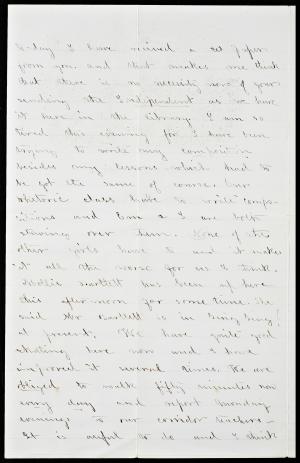 to-day I have recived a lot of paper
from you, and that makes me think
that there is no necessity now of your
sending the Independent as we have
it here in the Library. I am so
tired this evening for I have been
trying to write my composition
besides my lessons which had to
be got the same of course. Our
rhetoric class have to write compo-
sitions and Em & I are both
stewing over them. None of the
other girls have to and it makes
it all the worse for us I think.
Mollie Bartlett has been up here
this afternoon for some time. She
said Mr Bartlett is in Sing Sing!
at present. We have quite good
skating here now and I have
improved it several times. We are
obliged to walk fifty minutes now
every day and report Monday
evenings to our corridor teachers—
It is awful to do and I think